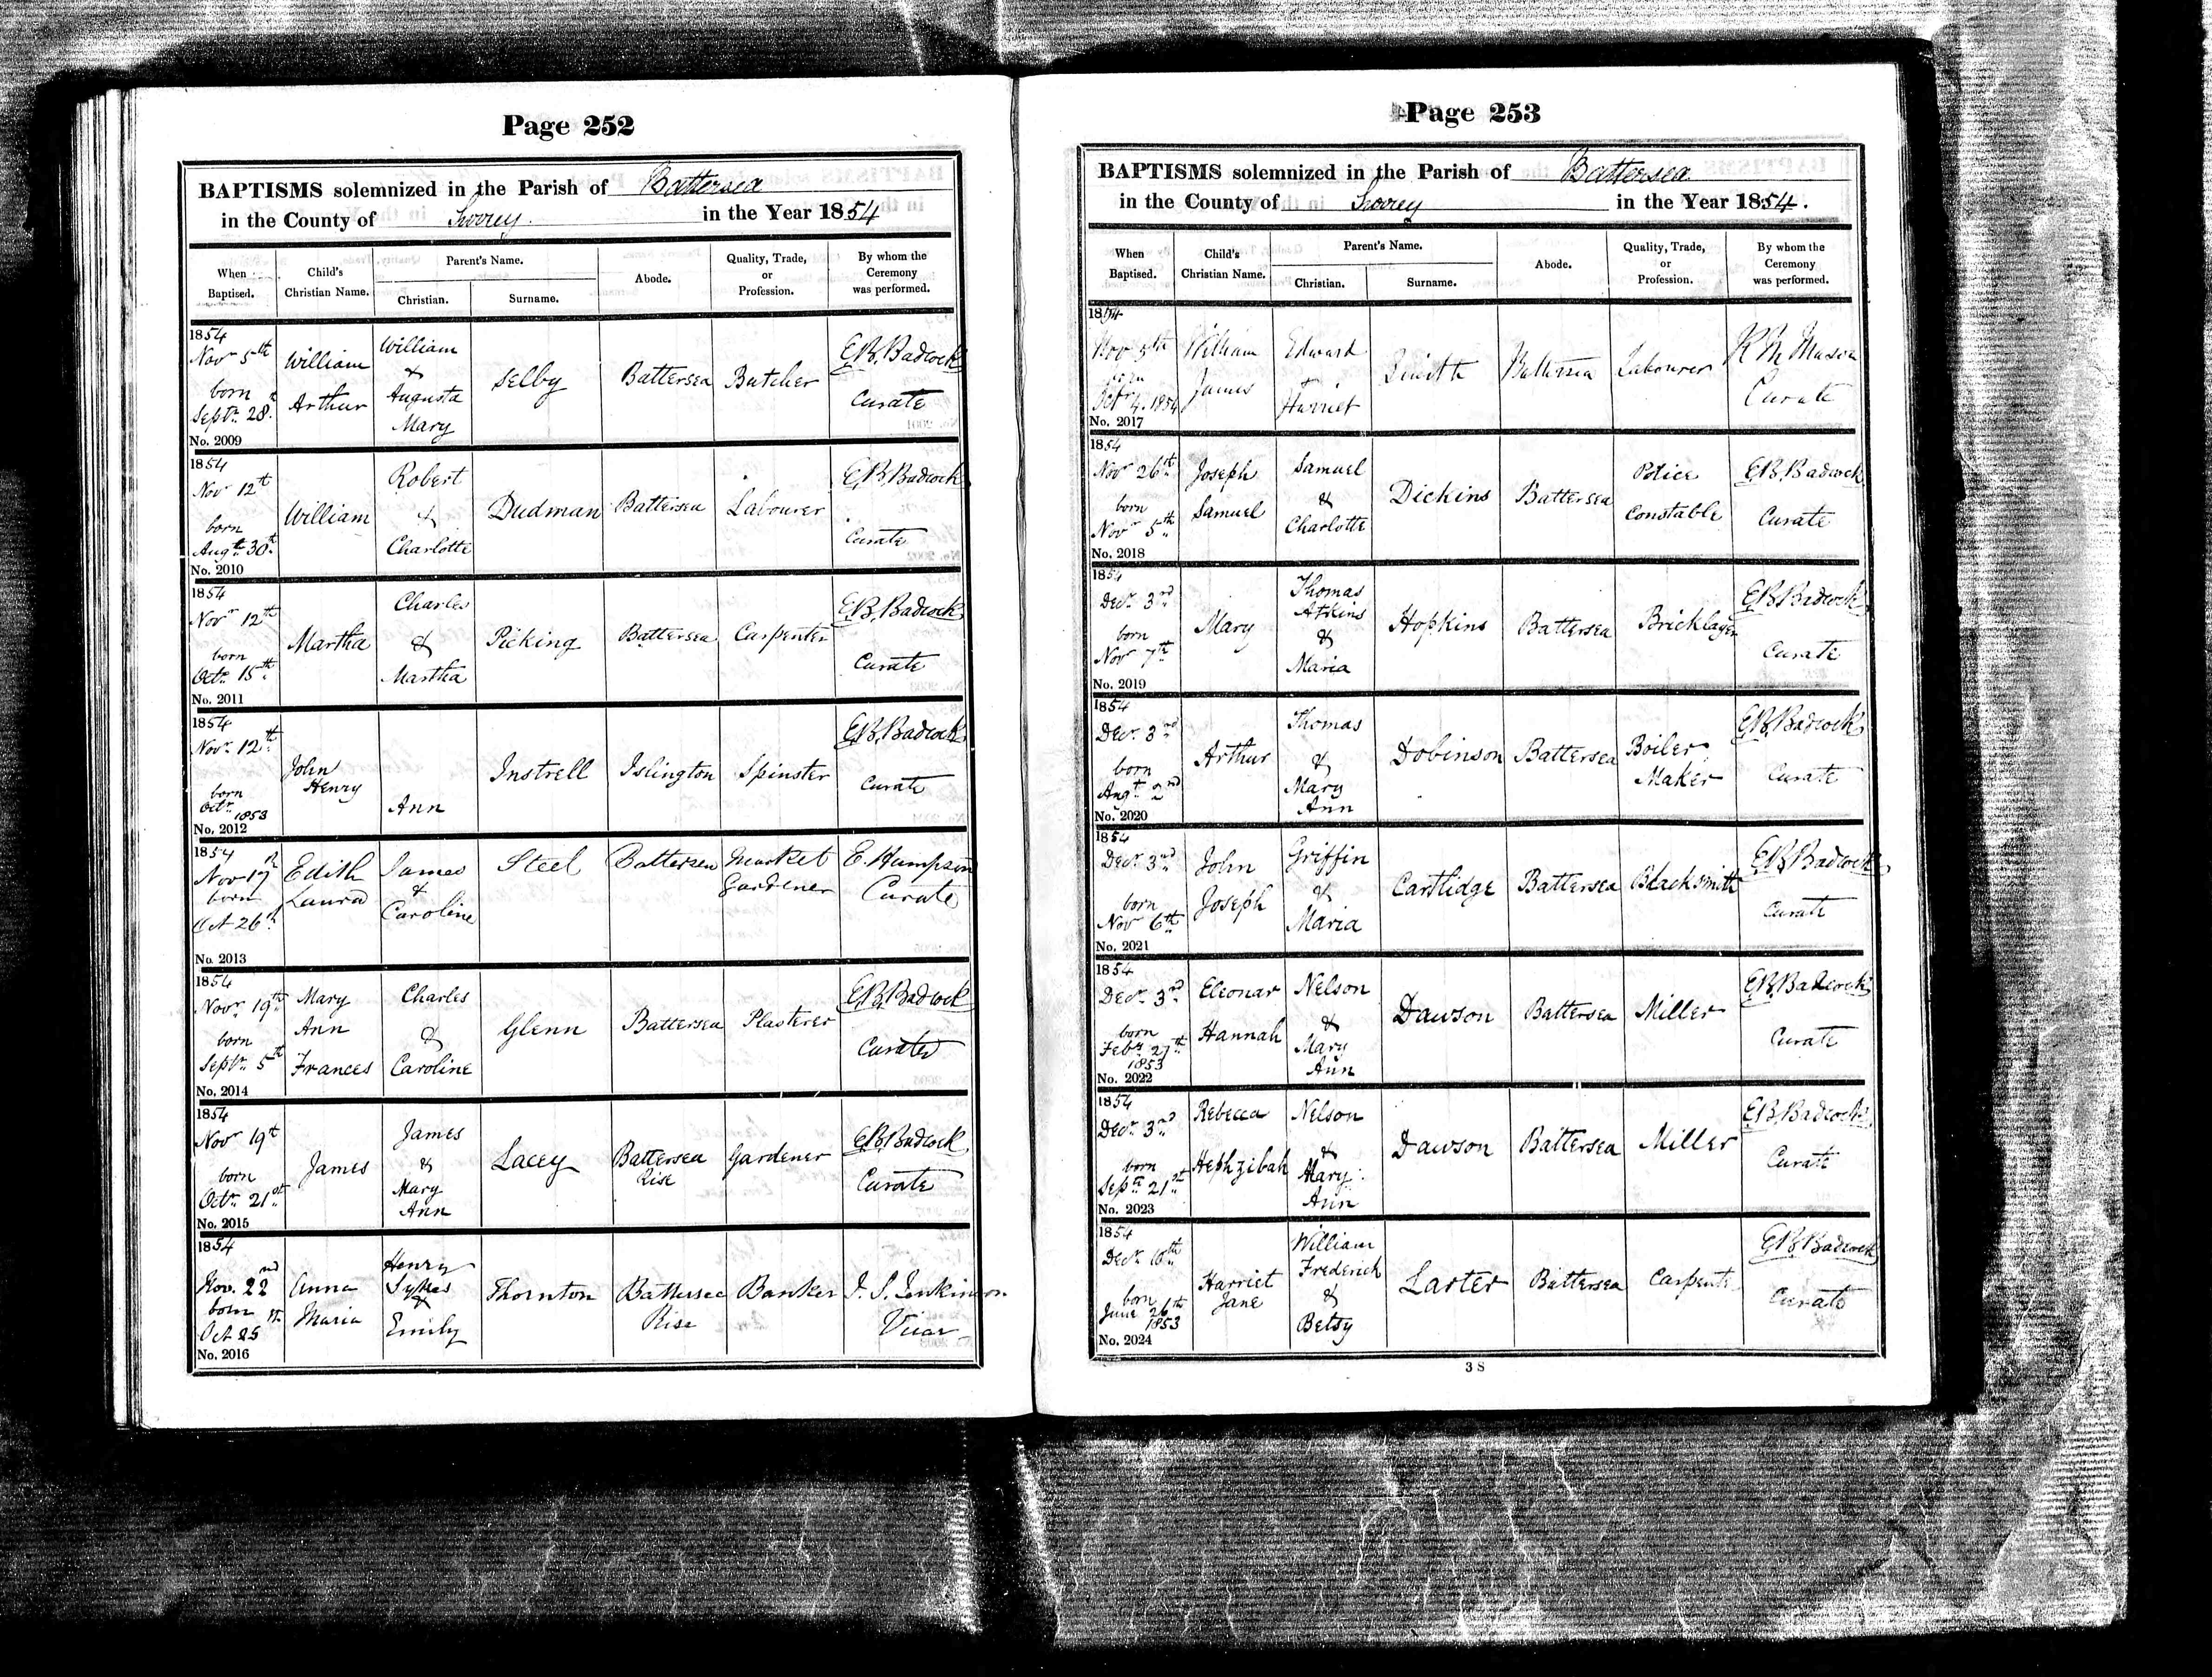 Page 252
BAPTISMS solemnized in the Parish of Battersea
in the County of Surrey in the Year 1854
When Baptised.
Child's Christian Name.
Parent's Name.
Christian.
Surname.
Abode.
Quality, Trade, or Profession.
By whom the Ceremony was performed.
1854
Novr 5th
born
Septr 28th
No. 2009
William
Arthur
William
&
Augusta
Mary
Selby
Battersea
Butcher
E.B. Badcock
Curate
1854
Novr 12th
born
Augt 30th
No. 2010
William
Robert
&
Charlotte
Dudman
Battersea
Labourer
E.B. Badcock
Curate
1854
Novr 12th
born
Octr 15th
No. 2011
Martha
Charles
&
Martha
Picking
Battersea
Carpenter
E.B. Badcock
Curate
1854
Novr 12th
born
Octr 1853
No. 2012
John
Henry
Ann
Instrell
Islington
Spinster
E.B. Badcock
Curate
1854
Nov 17th
born
Oct 26th
No. 2013
Edith
Laura
James
&
Caroline
Steel
Battersea
Market
Gardener
E. Hampson
Curate
1854
Novr 19th
born
Septr 5th
No. 2014
Mary
Ann
Frances
Charles
&
Caroline
Glenn
Battersea
Plasterer
E.B. Badcock
Curate
1854
Novr 19th
born
Octr 21st
No. 2015
James
James
&
Mary
Ann
Lacey
Battersea
Rise
Gardener
E.B. Badcock
Curate
1854
Nov. 22nd
born
Oct 25th
No. 2016
Anna
Maria
Henry
Sykes
&
Emily
Thornton
Battersea
Rise
Banker
J. S. Jenkinson
Vicar
Page 253
BAPTISMS solemnized in the Parish of Battersea
in the County of Surrey in the Year 1854.
When Baptised.
Child's Christian Name.
Parent's Name.
Christian.
Surname.
Abode.
Quality, Trade, or Profession.
By whom the Ceremony was performed.
1854
Nov 5th
born
Octr 4. 1854
No. 2017
William
James
Edward
Harriet
Smith
Battersea
Labourer
Curate
1854
Novr 26th
born
Novr 5th
No. 2018
Joseph
Samuel
Samuel
&
Charlotte
Dickins
Battersea
Police
Constable
E.B. Badcock
Curate
1854
Decr 3rd
born
Novr 7th
No. 2019
Mary
Thomas
Atkins
&
Maria
Hopkins
Battersea
Bricklayer
E.B. Badcock
Curate
1854
Decr 3rd
born
Augt 2nd
No. 2020
Arthur
Thomas
&
Mary
Ann
Dobinson
Battersea
Boiler
Maker
E.B. Badcock
Curate
1854
Decr 3rd
born
Novr 6th
No. 2021
John
Joseph
Griffin
&
Maria
Cartlidge
Battersea
Blacksmith
E.B. Badcock
Curate
1854
Decr 3rd
born
Febr 27th
1853
No. 2022
Eleonar
Hannah
Nelson
&
Mary
Ann
Dawson
Battersea
Miller
E.B. Badcock
Curate
1854
Decr 3rd
born
Septr 21st
No. 2023
Rebecca
Hephzibah
Nelson
&
Mary
Ann
Dawson
Battersea
Miller
E.B. Badcock
Curate
1854
Decr 10th
born
June 26th
1853
No. 2024
Harriet
Jane
William
Frederick
&
Betsy
Larter
Battersea
Carpenter
E.B. Badcock
Curate
3 S